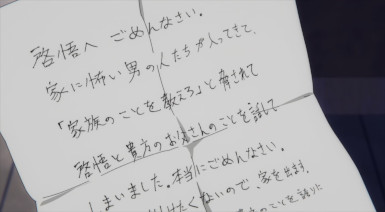 啓悟へ ごめんなさい。
家に怖い男の人たちが入ってきて、
「家族のことを教えろ」と脅されて
啓悟と貴方のお父さんのことを話して
しまいました。本当にごめんなさい。
けたくないので、家を出ます。
のことを話した